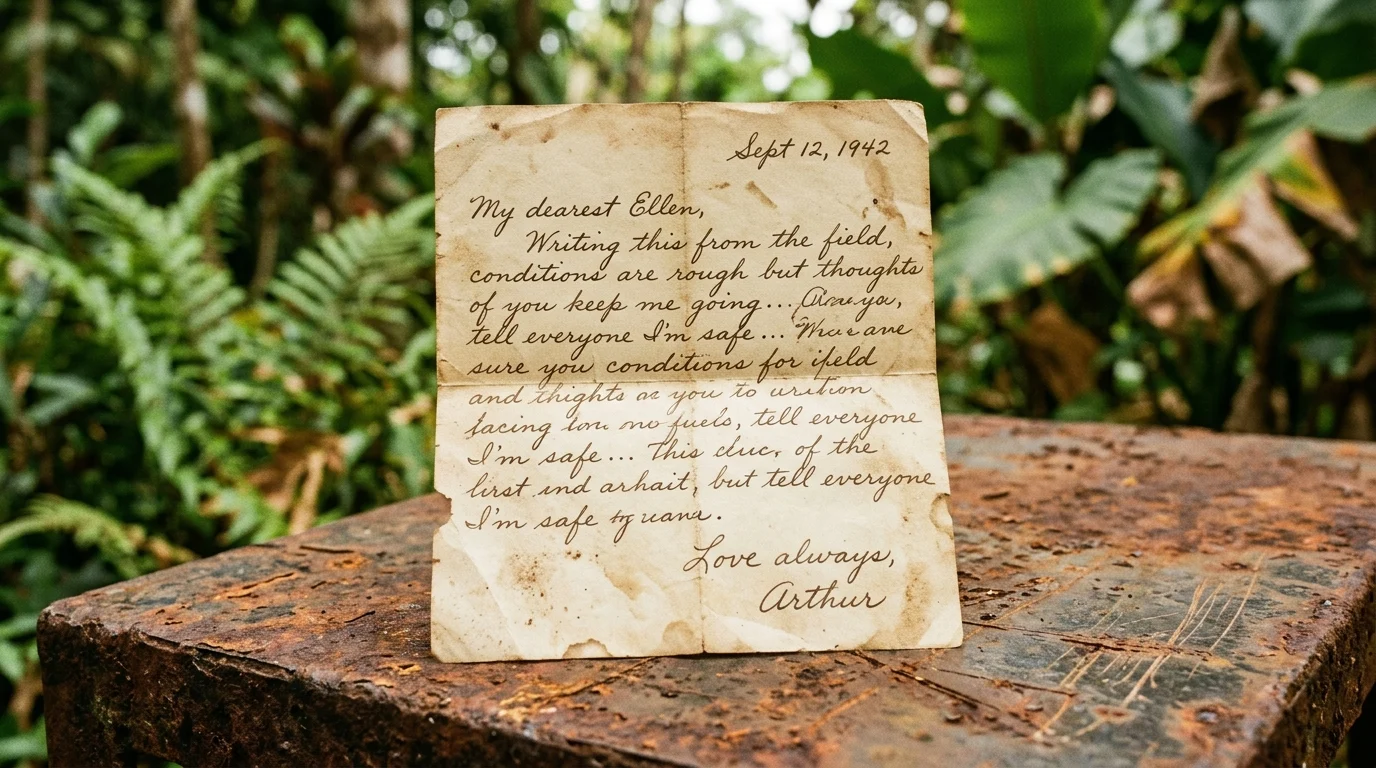 Sept 12, 1942
My dearest Ellen,
Writing this from the field,
conditions are rough but thoughts
of you keep me going...
tell everyone I'm safe...
sure you conditions for
and thights as you to
facing no fuels, tell everyone
I'm safe... This of the
but tell everyone
I'm safe
Love always,
Arthur